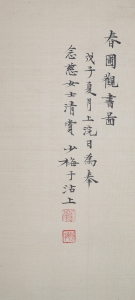 春園觀書圖
戊子夏月上浣日為奉
念慈女士清賞 少梅于沽上